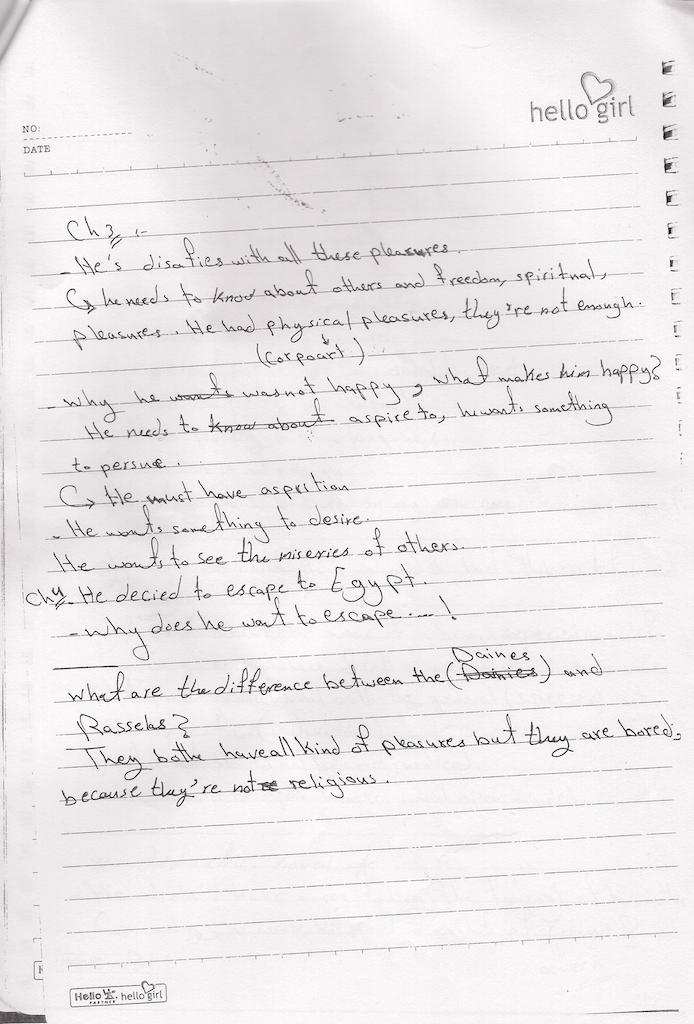 hello girl
NO:
DATE
Ch 3 :-
- He's disaties with all these pleasures.
↳ he needs to know about others and freedom, spiritual,
pleasures. He had physical pleasures, they're not enough.
(Corpourt)
- why he wants was not happy, what makes him happy?
He needs to know about aspire to, he wants something
to persue.
↳ He must have aspirtion
- He wants something to desire.
He wants to see the miseries of others.
Ch 4 - He decied to escape to Egypt.
- why does he want to escape....!
Daines
what are the difference between the (Dainies) and
Rasselas?
They bothe have all kind of pleasures but they are bored,
because they're not religious.
Hello PARTNER hello girl